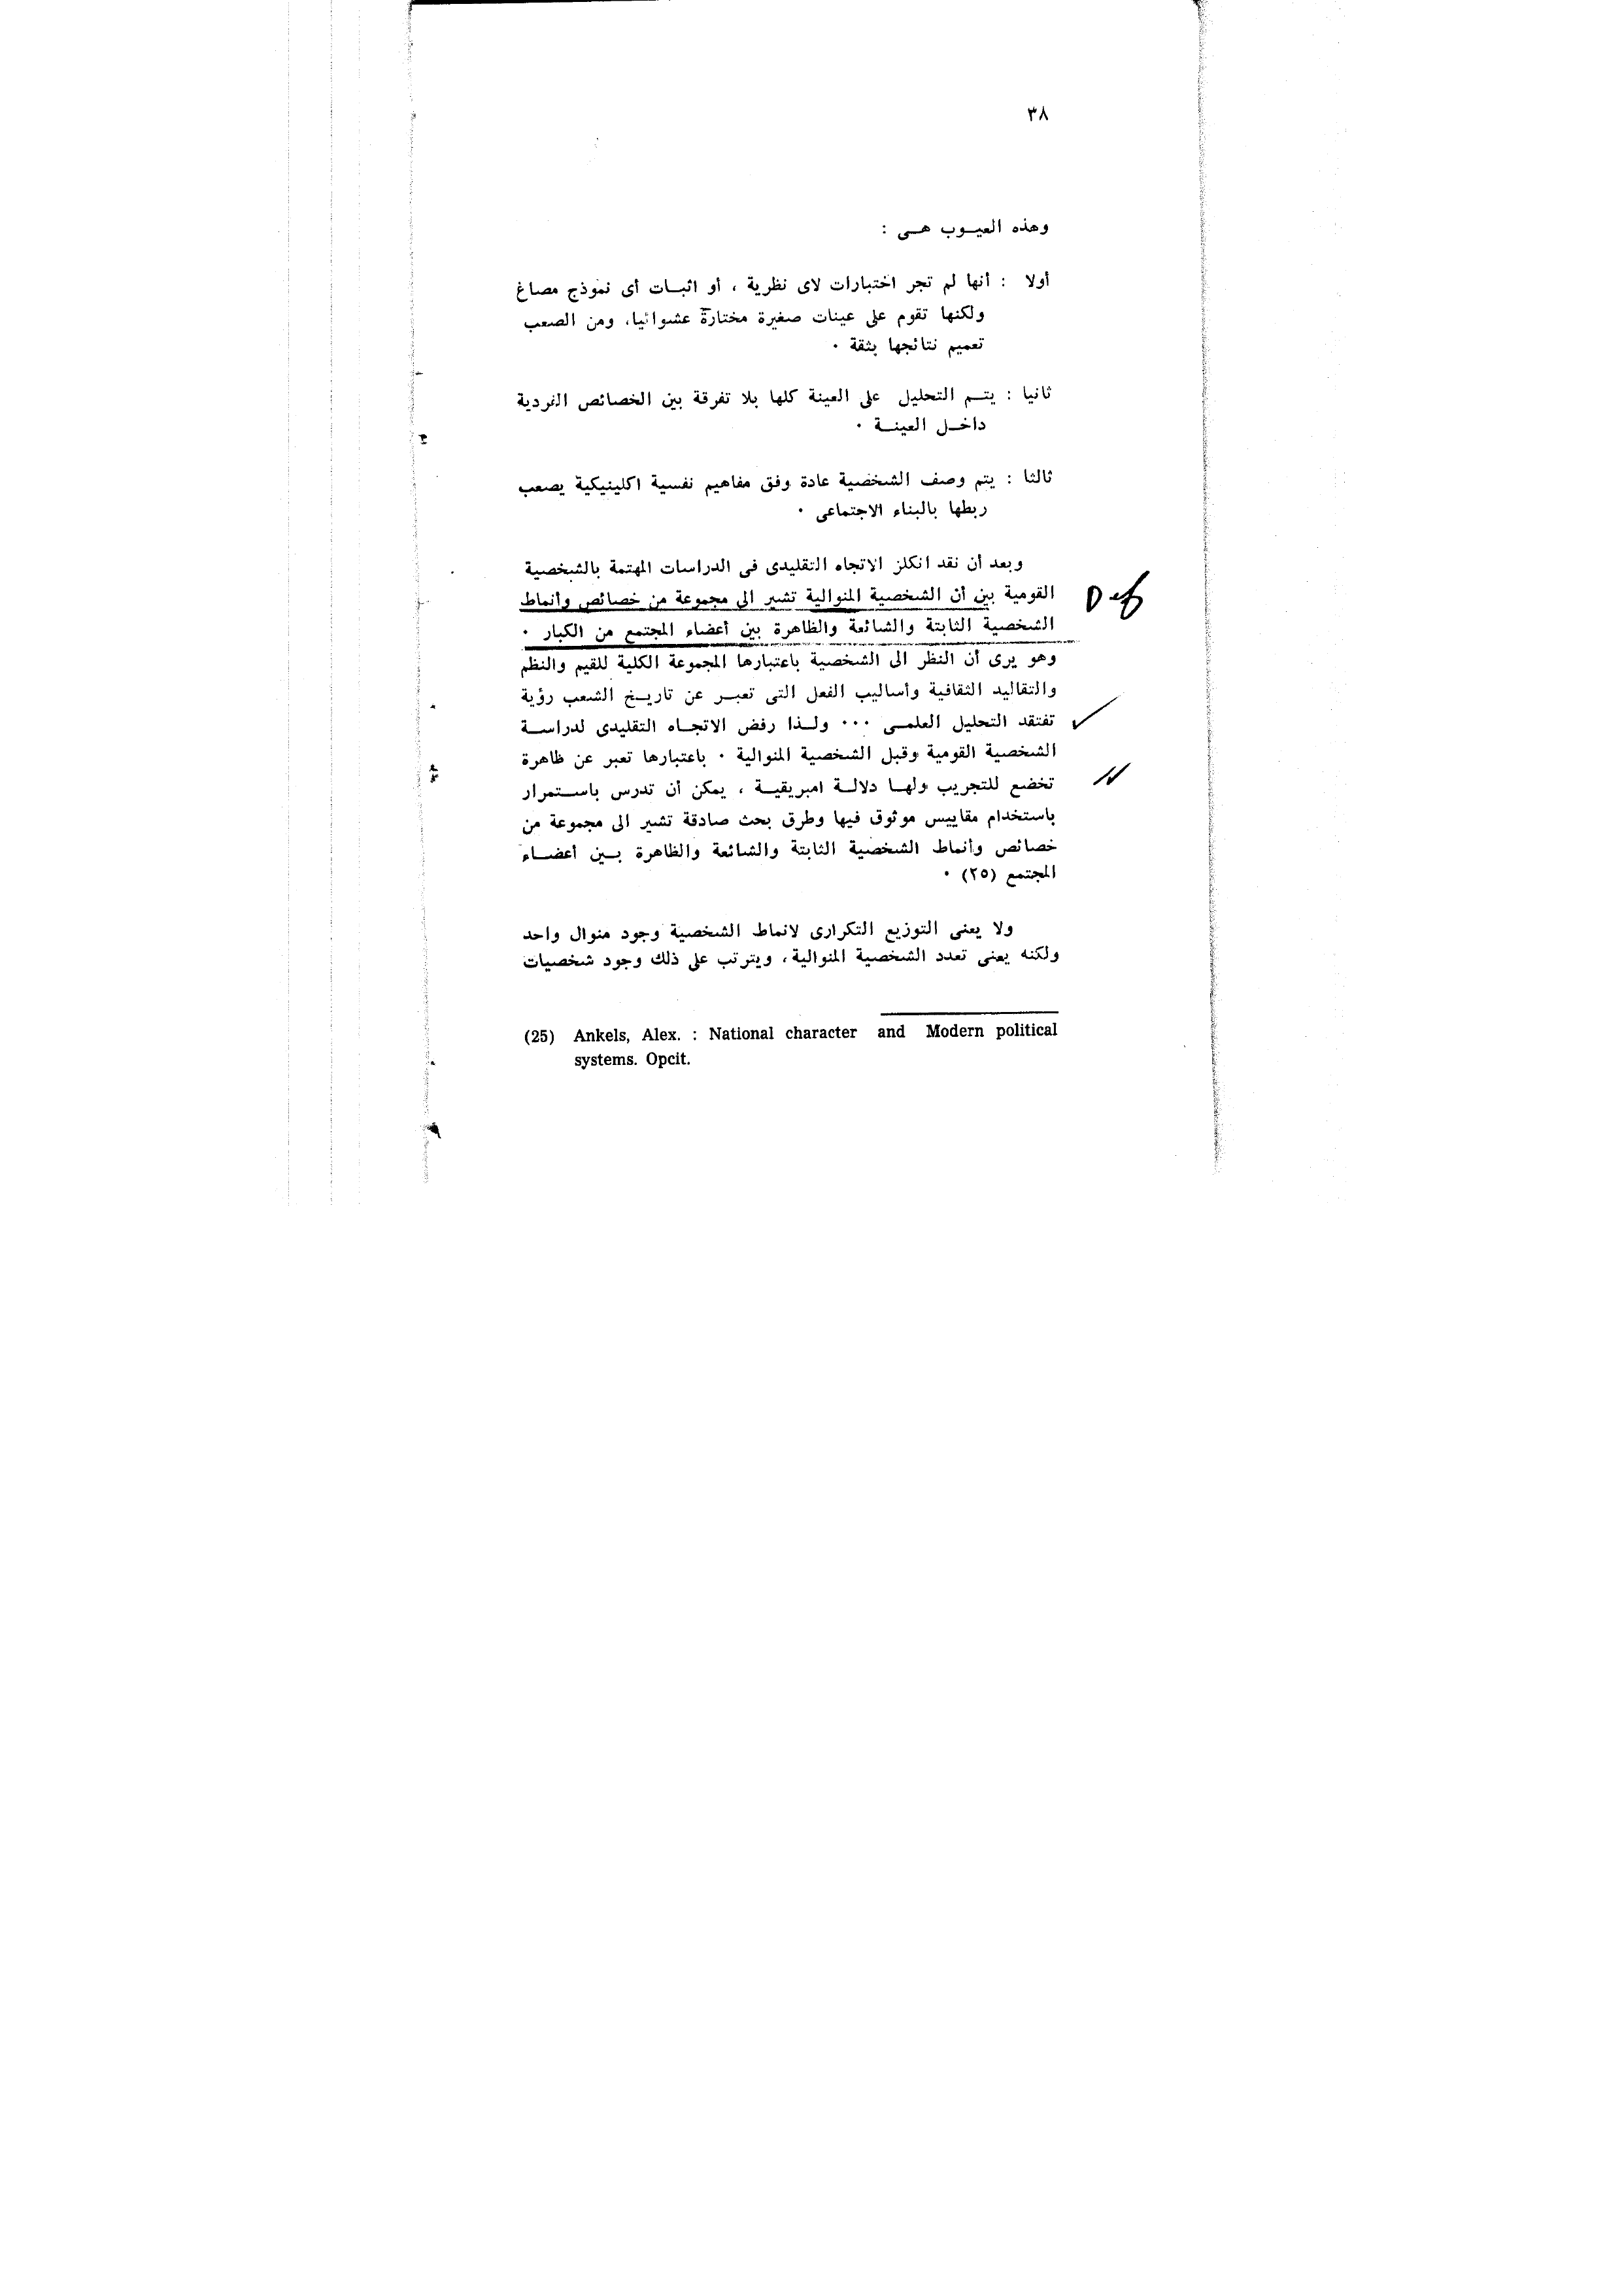 ٣٨
وهذه العيــوب هــى :
أولا : أنها لم تجر اختبارات لاى نظرية ، أو اثبــات أى نموذج مصاغ
ولكنها تقوم على عينات صغيرة مختارة عشوائيا، ومن الصعب
تعميم نتائجها بثقة ٠
ثانيا : يتــم التحليل على العينة كلها بلا تفرقة بين الخصائص الفردية
داخــل العينــة ٠
ثالثا : يتم وصف الشخصية عادة وفق مفاهيم نفسية اكلينيكية يصعب
ربطها بالبناء الاجتماعى ٠
وبعد أن نقد انكلز الاتجاه التقليدى فى الدراسات المهتمة بالشخصية
القومية بين أن الشخصية المنوالية تشير الى مجموعة من خصائص وأنماط
Def
الشخصية الثابتة والشائعة والظاهرة بين أعضاء المجتمع من الكبار ٠
وهو يرى أن النظر الى الشخصية باعتبارها المجموعة الكلية للقيم والنظم
والتقاليد الثقافية وأساليب الفعل التى تعبــر عن تاريــخ الشعب رؤية
تفتقد التحليل العلمــى ٠٠٠ ولــذا رفض الاتجــاه التقليدى لدراســة
الشخصية القومية وقبل الشخصية المنوالية ٠ باعتبارها تعبر عن ظاهرة
تخضع للتجريب ولهــا دلالــة امبريقيــة ، يمكن أن تدرس باســتمرار
باستخدام مقاييس موثوق فيها وطرق بحث صادقة تشير الى مجموعة من
خصائص وأنماط الشخصية الثابتة والشائعة والظاهرة بــين أعضــاء
المجتمع (٢٥) ٠
ولا يعنى التوزيع التكرارى لانماط الشخصية وجود منوال واحد
ولكنه يعنى تعدد الشخصية المنوالية، ويترتب على ذلك وجود شخصيات
(25) Ankels, Alex. : National character and Modern political
systems. Opcit.